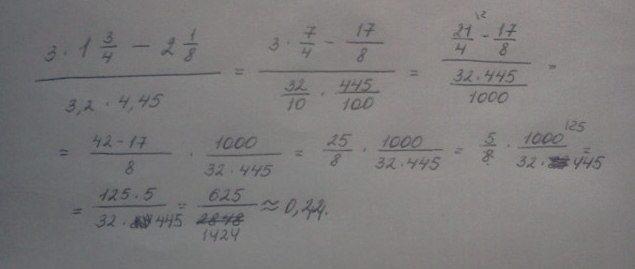 (3 · 1 3/4 − 2 1/8) / (3,2 · 4,45) = (3 · 7/4 − 17/8) / (32/10 · 445/100) = (21/4 ^12 − 17/8) / (32·445/1000) =
= (42−17)/8 · 1000/(32·445) = 25/8 · 1000/(32·445) = 5/8 · 1000 ^125/(32· 445) =
= 125·5/(32· 445) = 625/1424 ≈ 0,44.